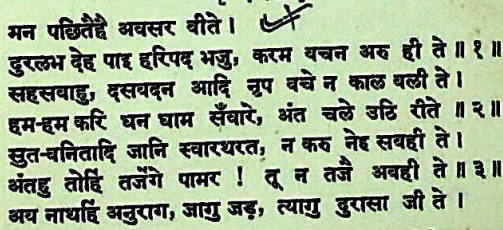 मन पछितैहै अवसर बीते ।
दुरलभ देह पाइ हरिपद भजु, करम बचन अरु ही ते ॥ १ ॥
सहसबाहु, दसबदन आदि नृप बचे न काल बली ते ।
हम-हम करि धन धाम सँवारे, अंत चले उठि रीते ॥ २ ॥
सुत-बनितादि जानि स्वारथरत, न करु नेह सबही ते ।
अंतहु तोहिं तजेंगे पामर ! तू न तजै अबही ते ॥ ३ ॥
अब नाथहिं अनुराग, जागु जड़, त्यागु दुरासा जी ते ।